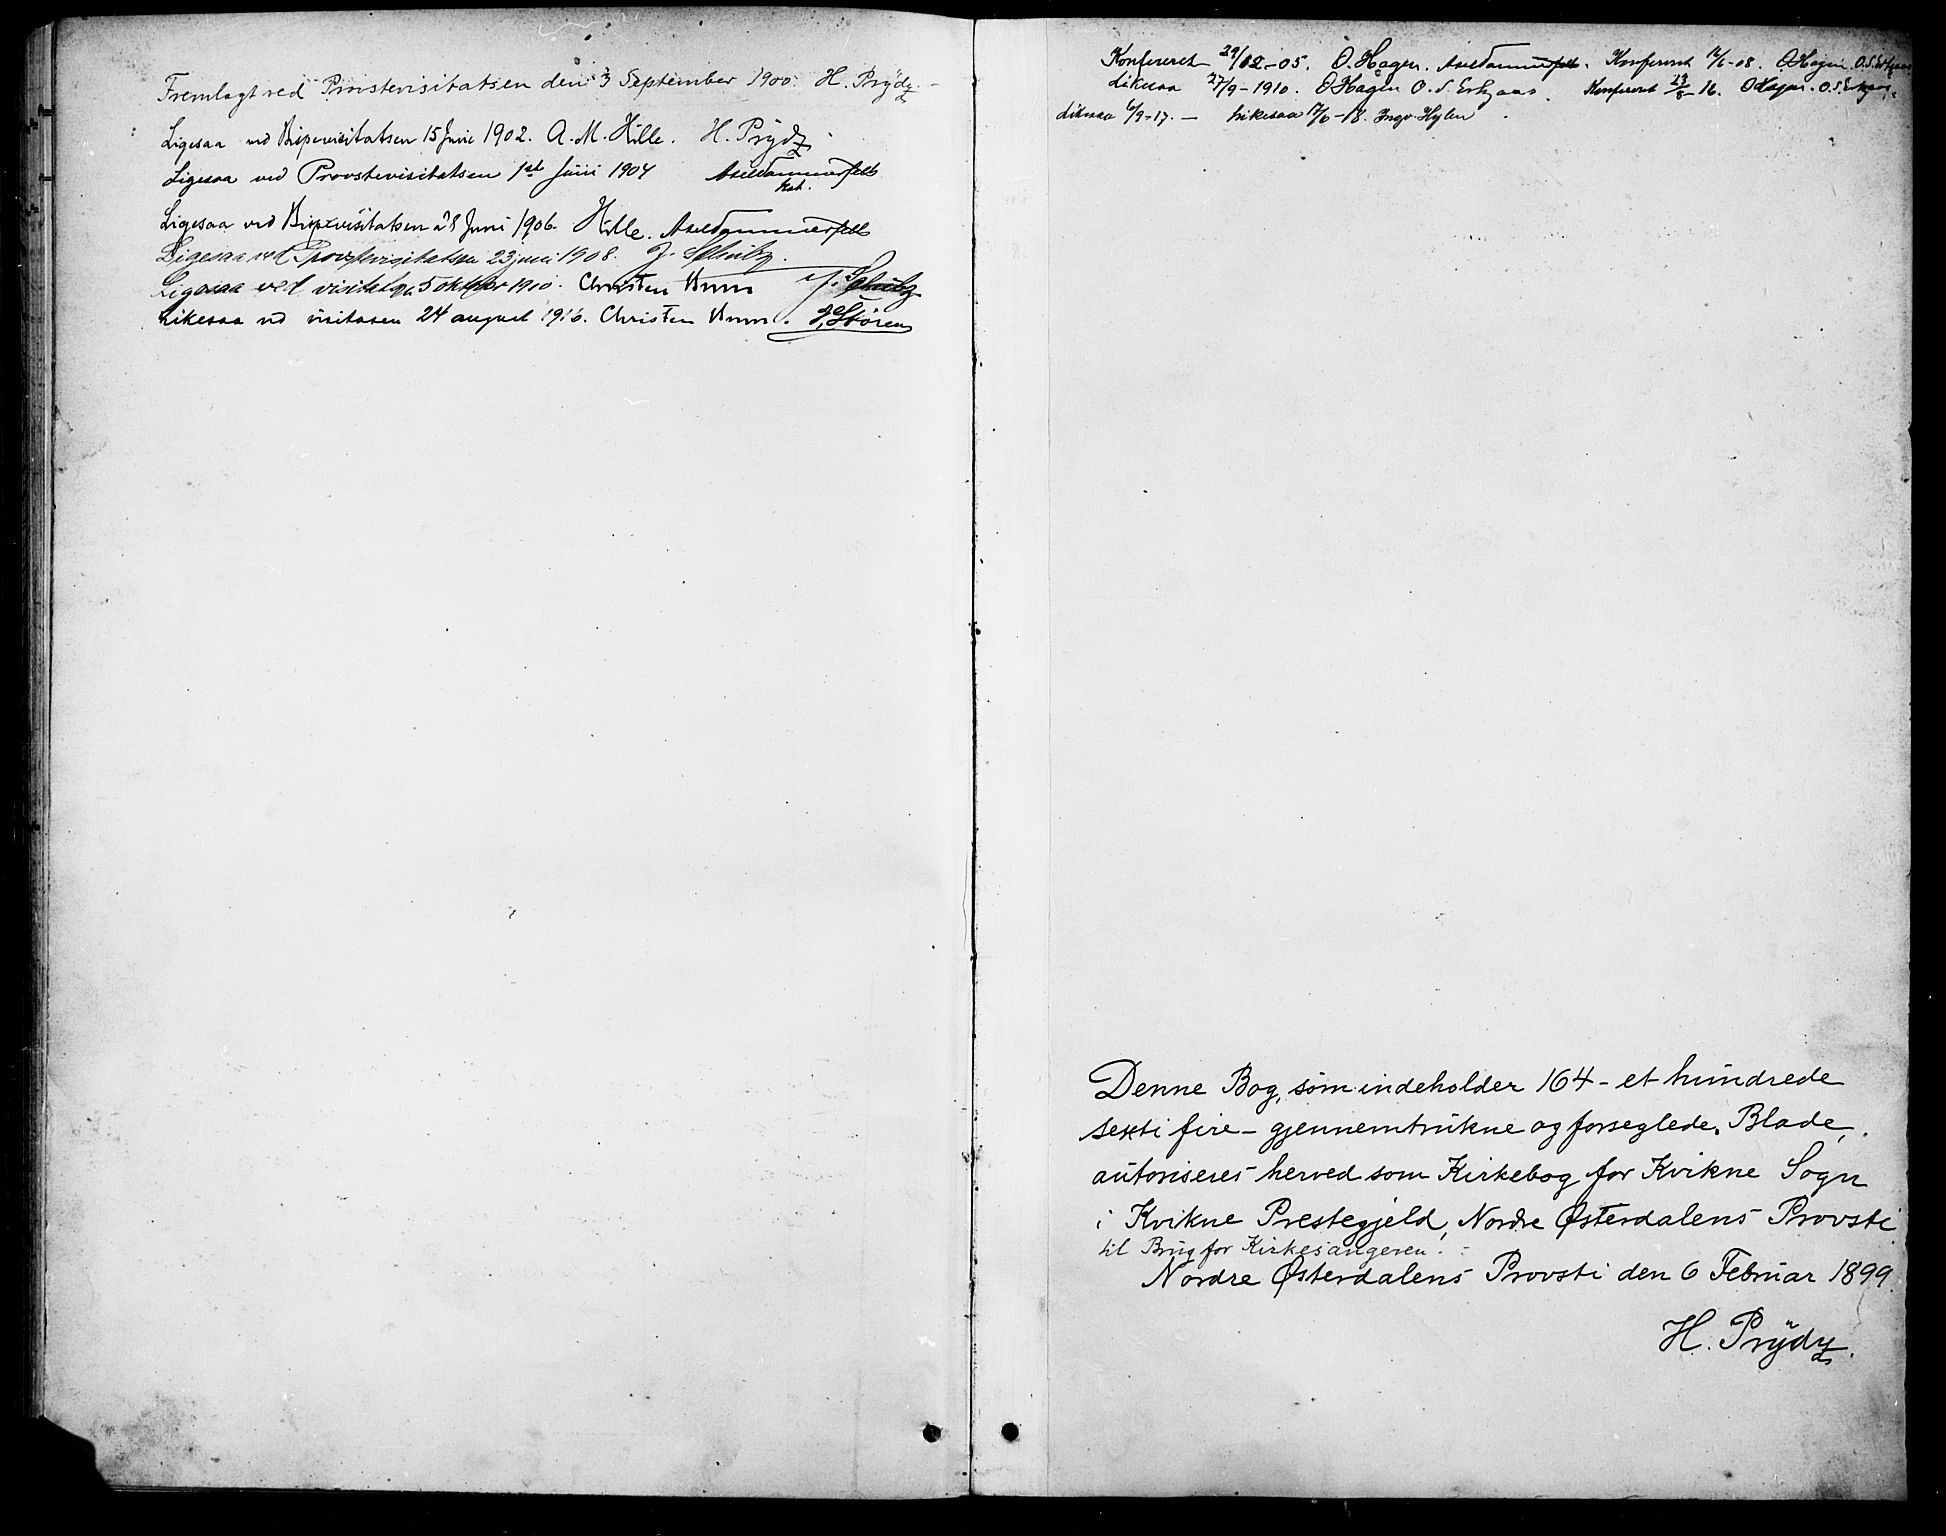 Fremlagt ved Provstevisitatsen den 3 September 1900. H. Prÿdz
Ligesaa ved Bispevisitatsen 15 Juni 1902. A. M. Hille. H. Prÿdz.
Ligesaa ved Provstevisitatsen 1ste Juni 1904
Ligesaa ved Bispevisitatsen 28 Juni 1906. Hille.
Ligesaa ved Provstevisitatsen 23 juni 1908. J. Schultz.
Ligesaa ved visitatsen 5 oktober 1910. Christen Brun J. Schultz
Likesaa ved visitasen 24 august 1916. Christen Brun. J. Støren
Konfereret 29/12-05. O. Hagen. Konfereret 16/6-08. O Hagen
Likesaa 27/9-1910. O Hagen O. S. Konfereret 23/8-16. O Hagen. O. S.
Likesaa 6/9-17. — Likesaa 17/6-18. Ingv. Hylen
Denne Bog, som indeholder 164 - et hundrede
sexti fire - gjennemtrukne og forseglede Blade,
autoriseres herved som Kirkebog for Kvikne Sogn
i Kvikne Prestegjeld, Nordre Østerdalens Provsti
til Brug for Kirkesangeren.
Nordre Østerdalens Provsti den 6 Februar 1899.
H. Prÿdz.